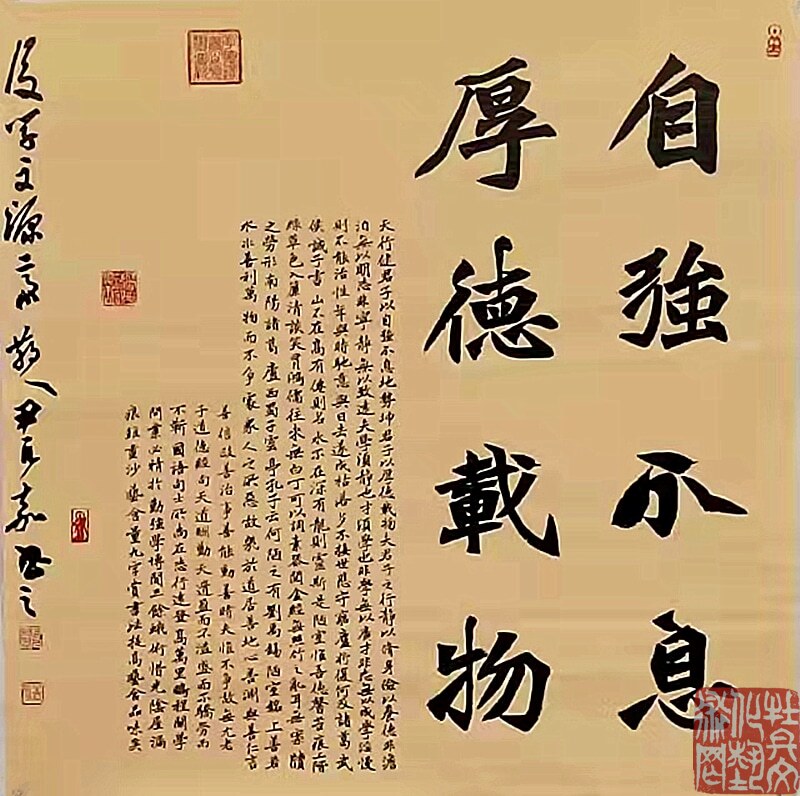 自強不息
厚德載物
天行健君子以自強不息地勢坤君子以厚德載物夫君子之行静以修身儉以養德非澹
泊無以明志非寧静無以致遠夫學須静也才須學也非學無以廣才非志無以成學淫慢
則不能治性年與時馳意與日去遂成枯落多不接世悲守窮廬將復何及諸葛武
侯誡子書山不在高有僊則名水不在深有龍則靈斯是陋室惟吾德馨苔痕上階
綠草色入簾清談笑有鴻儒往來無白丁可以調素琴閲金經無絲竹之亂耳無案牘
之勞形南陽諸葛廬西蜀子雲亭孔子云何陋之有劉禹錫陋室銘上善若
水水善利萬物而不争處衆人之所惡故幾於道居善地心善淵與善仁言
善信政善治事善能動善時夫惟不争故無尤老
子道德經句天道酬勤天道盈而不溢盛而不驕勞而
不矜國語句士所尚在志行遠登高萬里鵬程關學
問業必精於勤強學博聞二餘蛾術惜光陰屋漏
痕錐畫沙藝舍九字賞書法提高藝舍品味矣
後學文源齋散人尹嘉書之